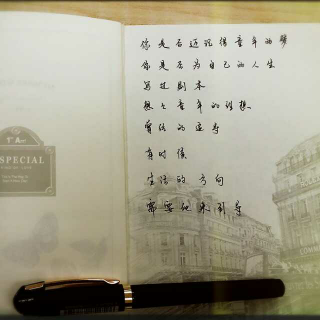 你是否还记得童年的梦
你是否为自己的人生
写过剧本
想之童年的理想
曾经的追寻
有时候
生活的方向
需要他来引导
SPECIAL